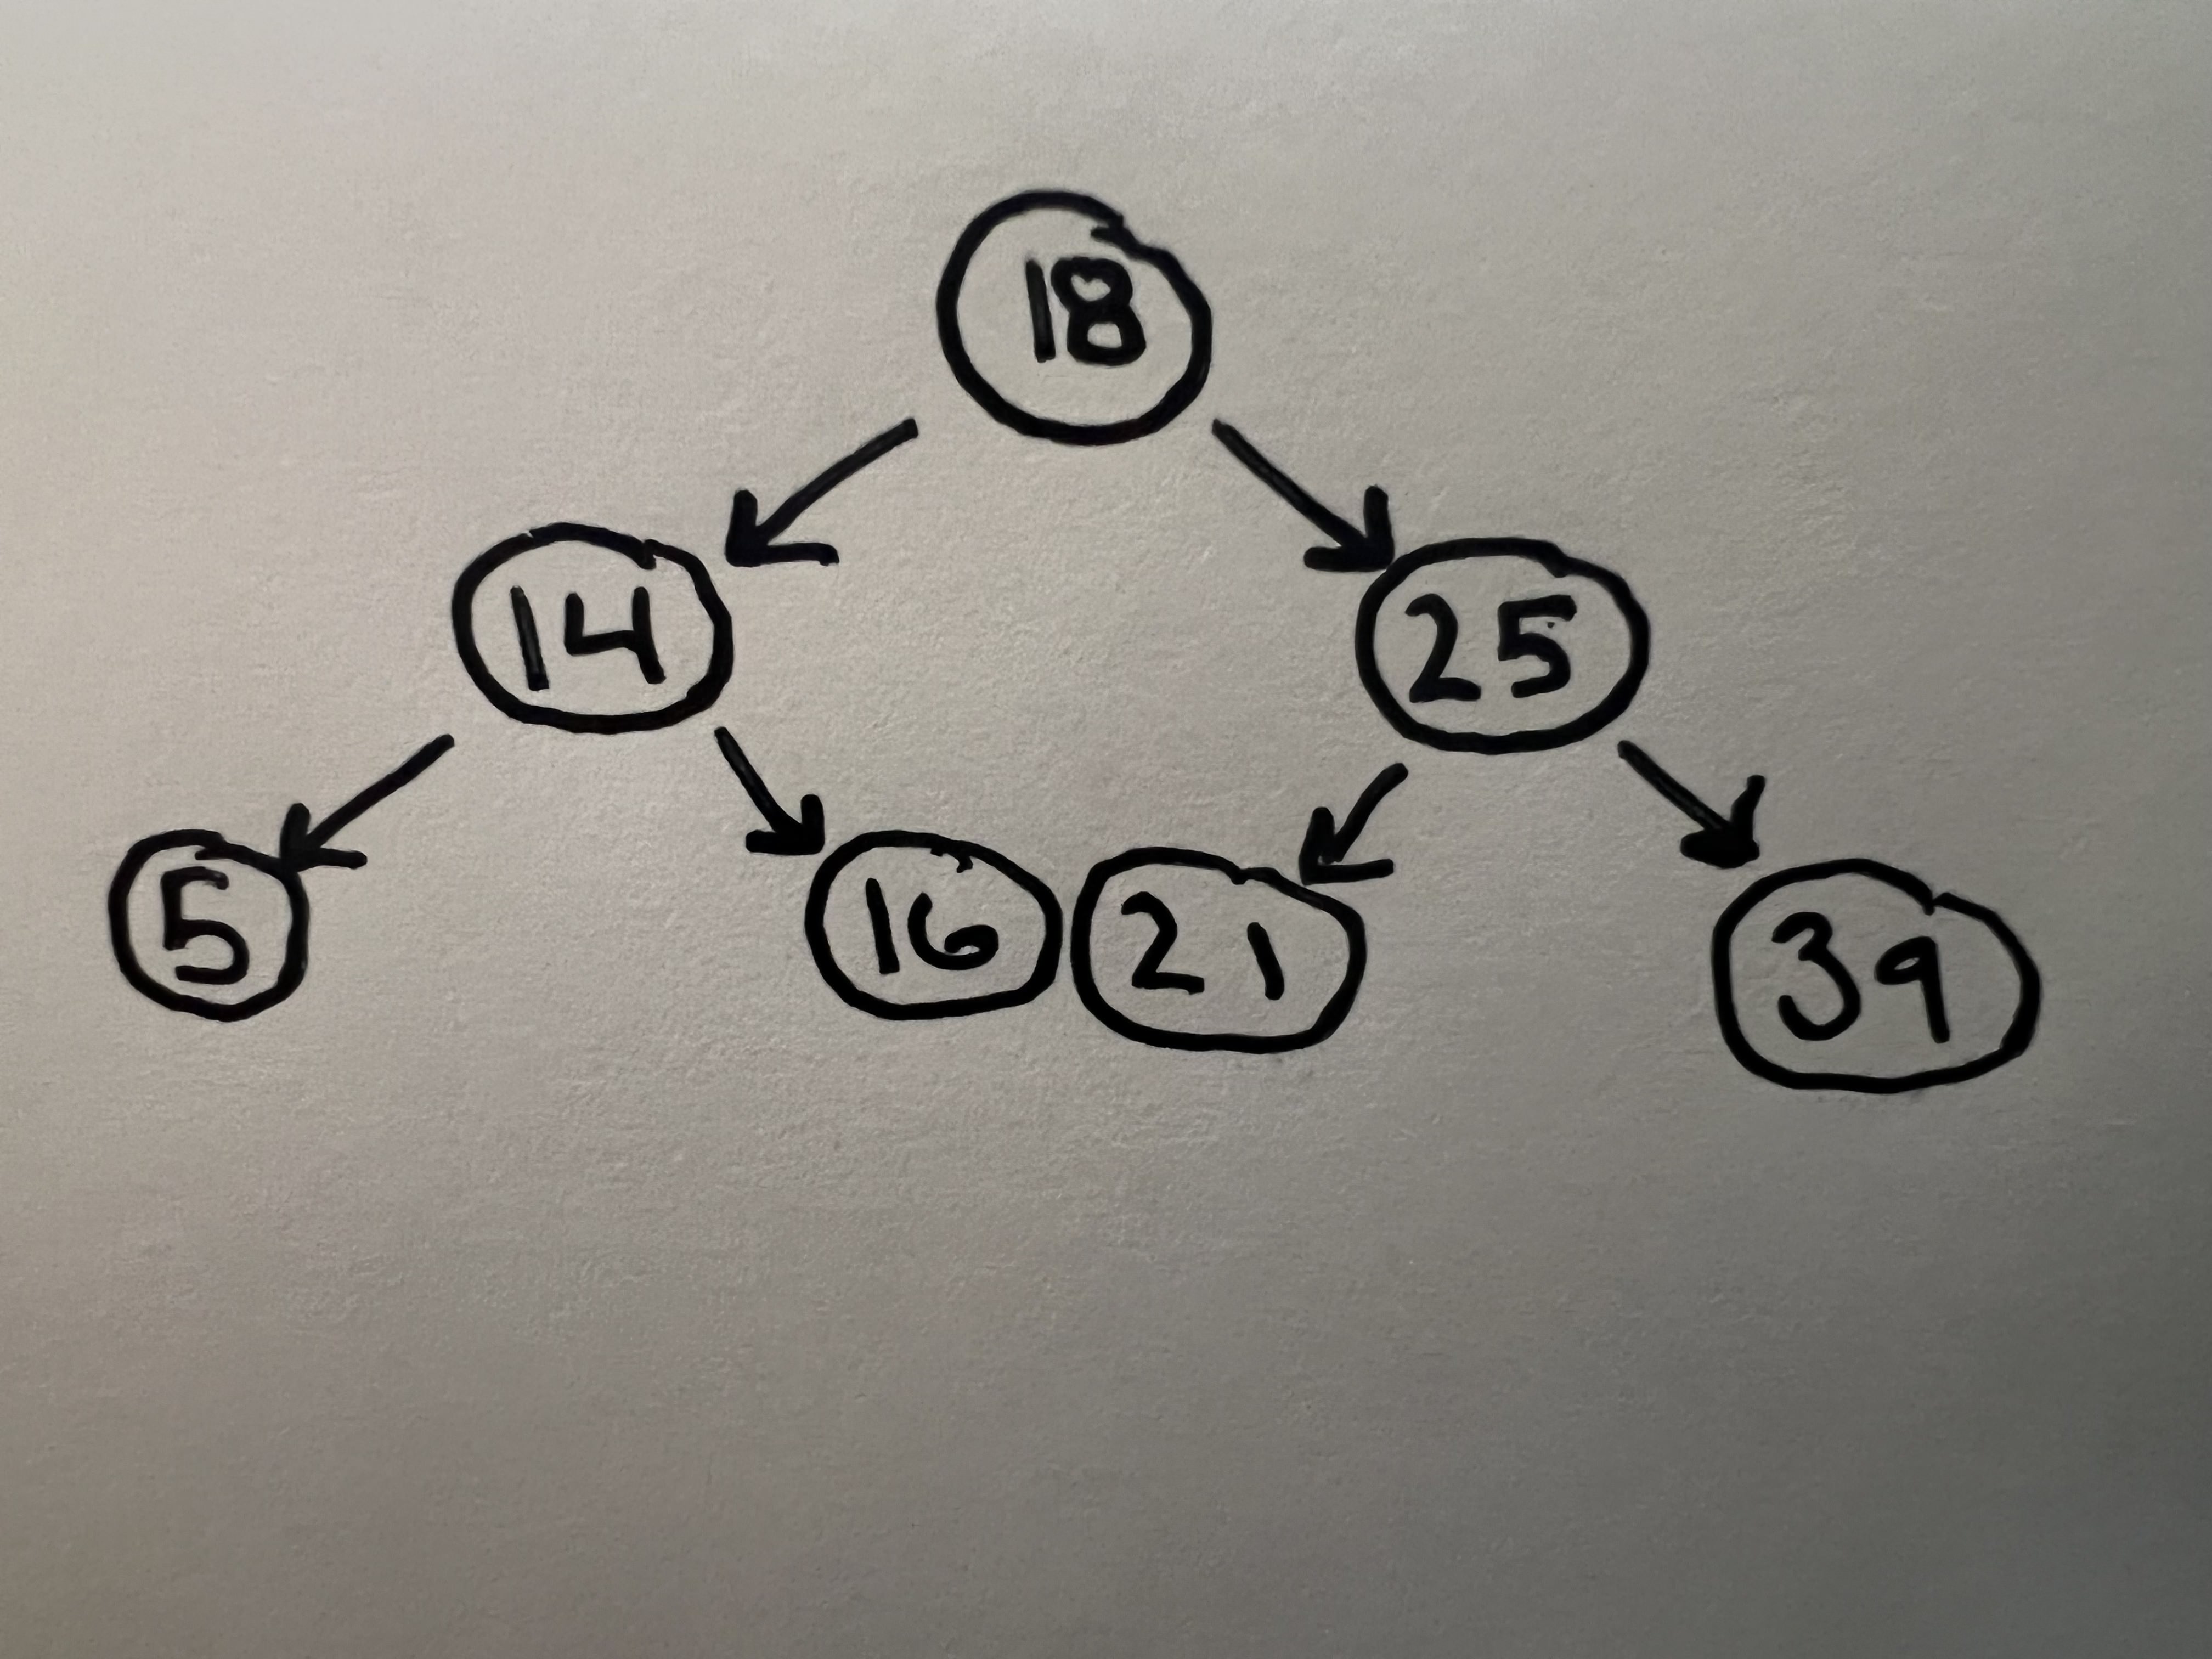 18
14 25
5 16 21 39